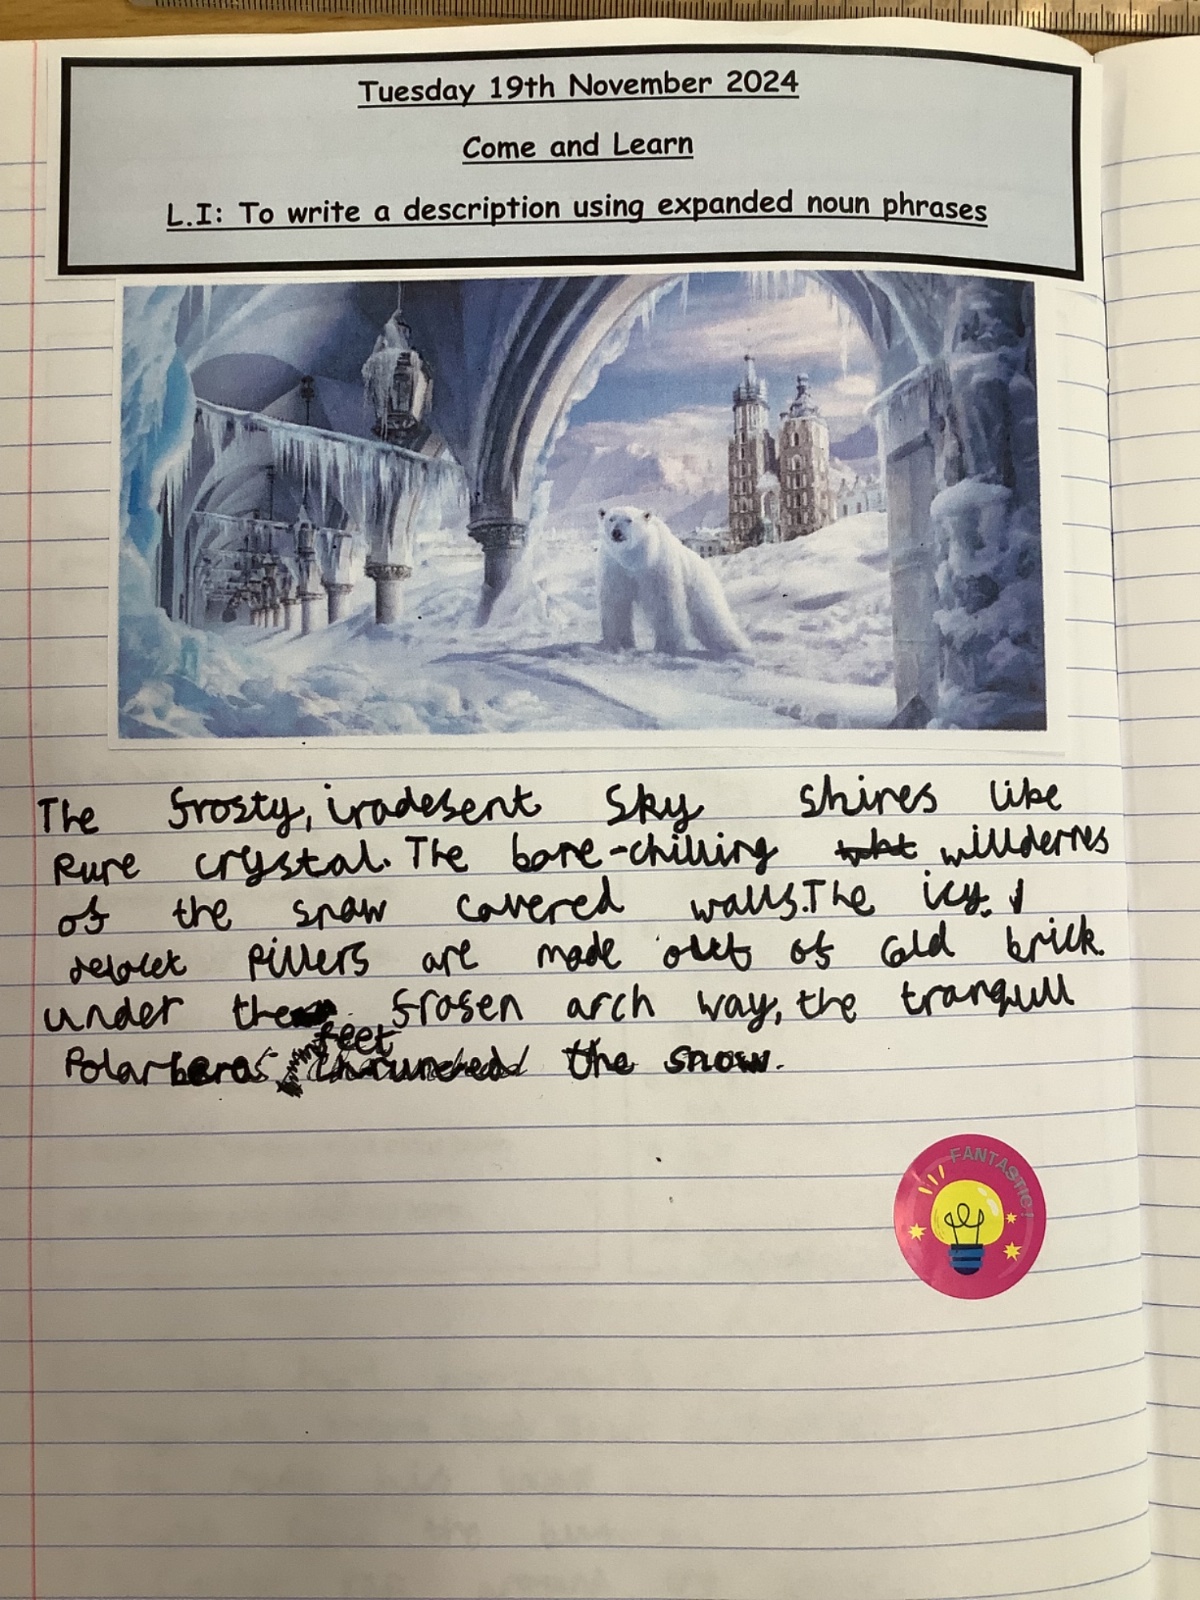 Tuesday 19th November 2024
Come and Learn
L.I: To write a description using expanded noun phrases
The frosty, iradesent sky shines like
Pure crystal. The bone-chilling willdernes
of the snow covered walls. The icy,
pillers are made out of cold brick.
under the frosen arch way, the tranqull
Polarberas feet chrunched the snow.
FANTASTIC!